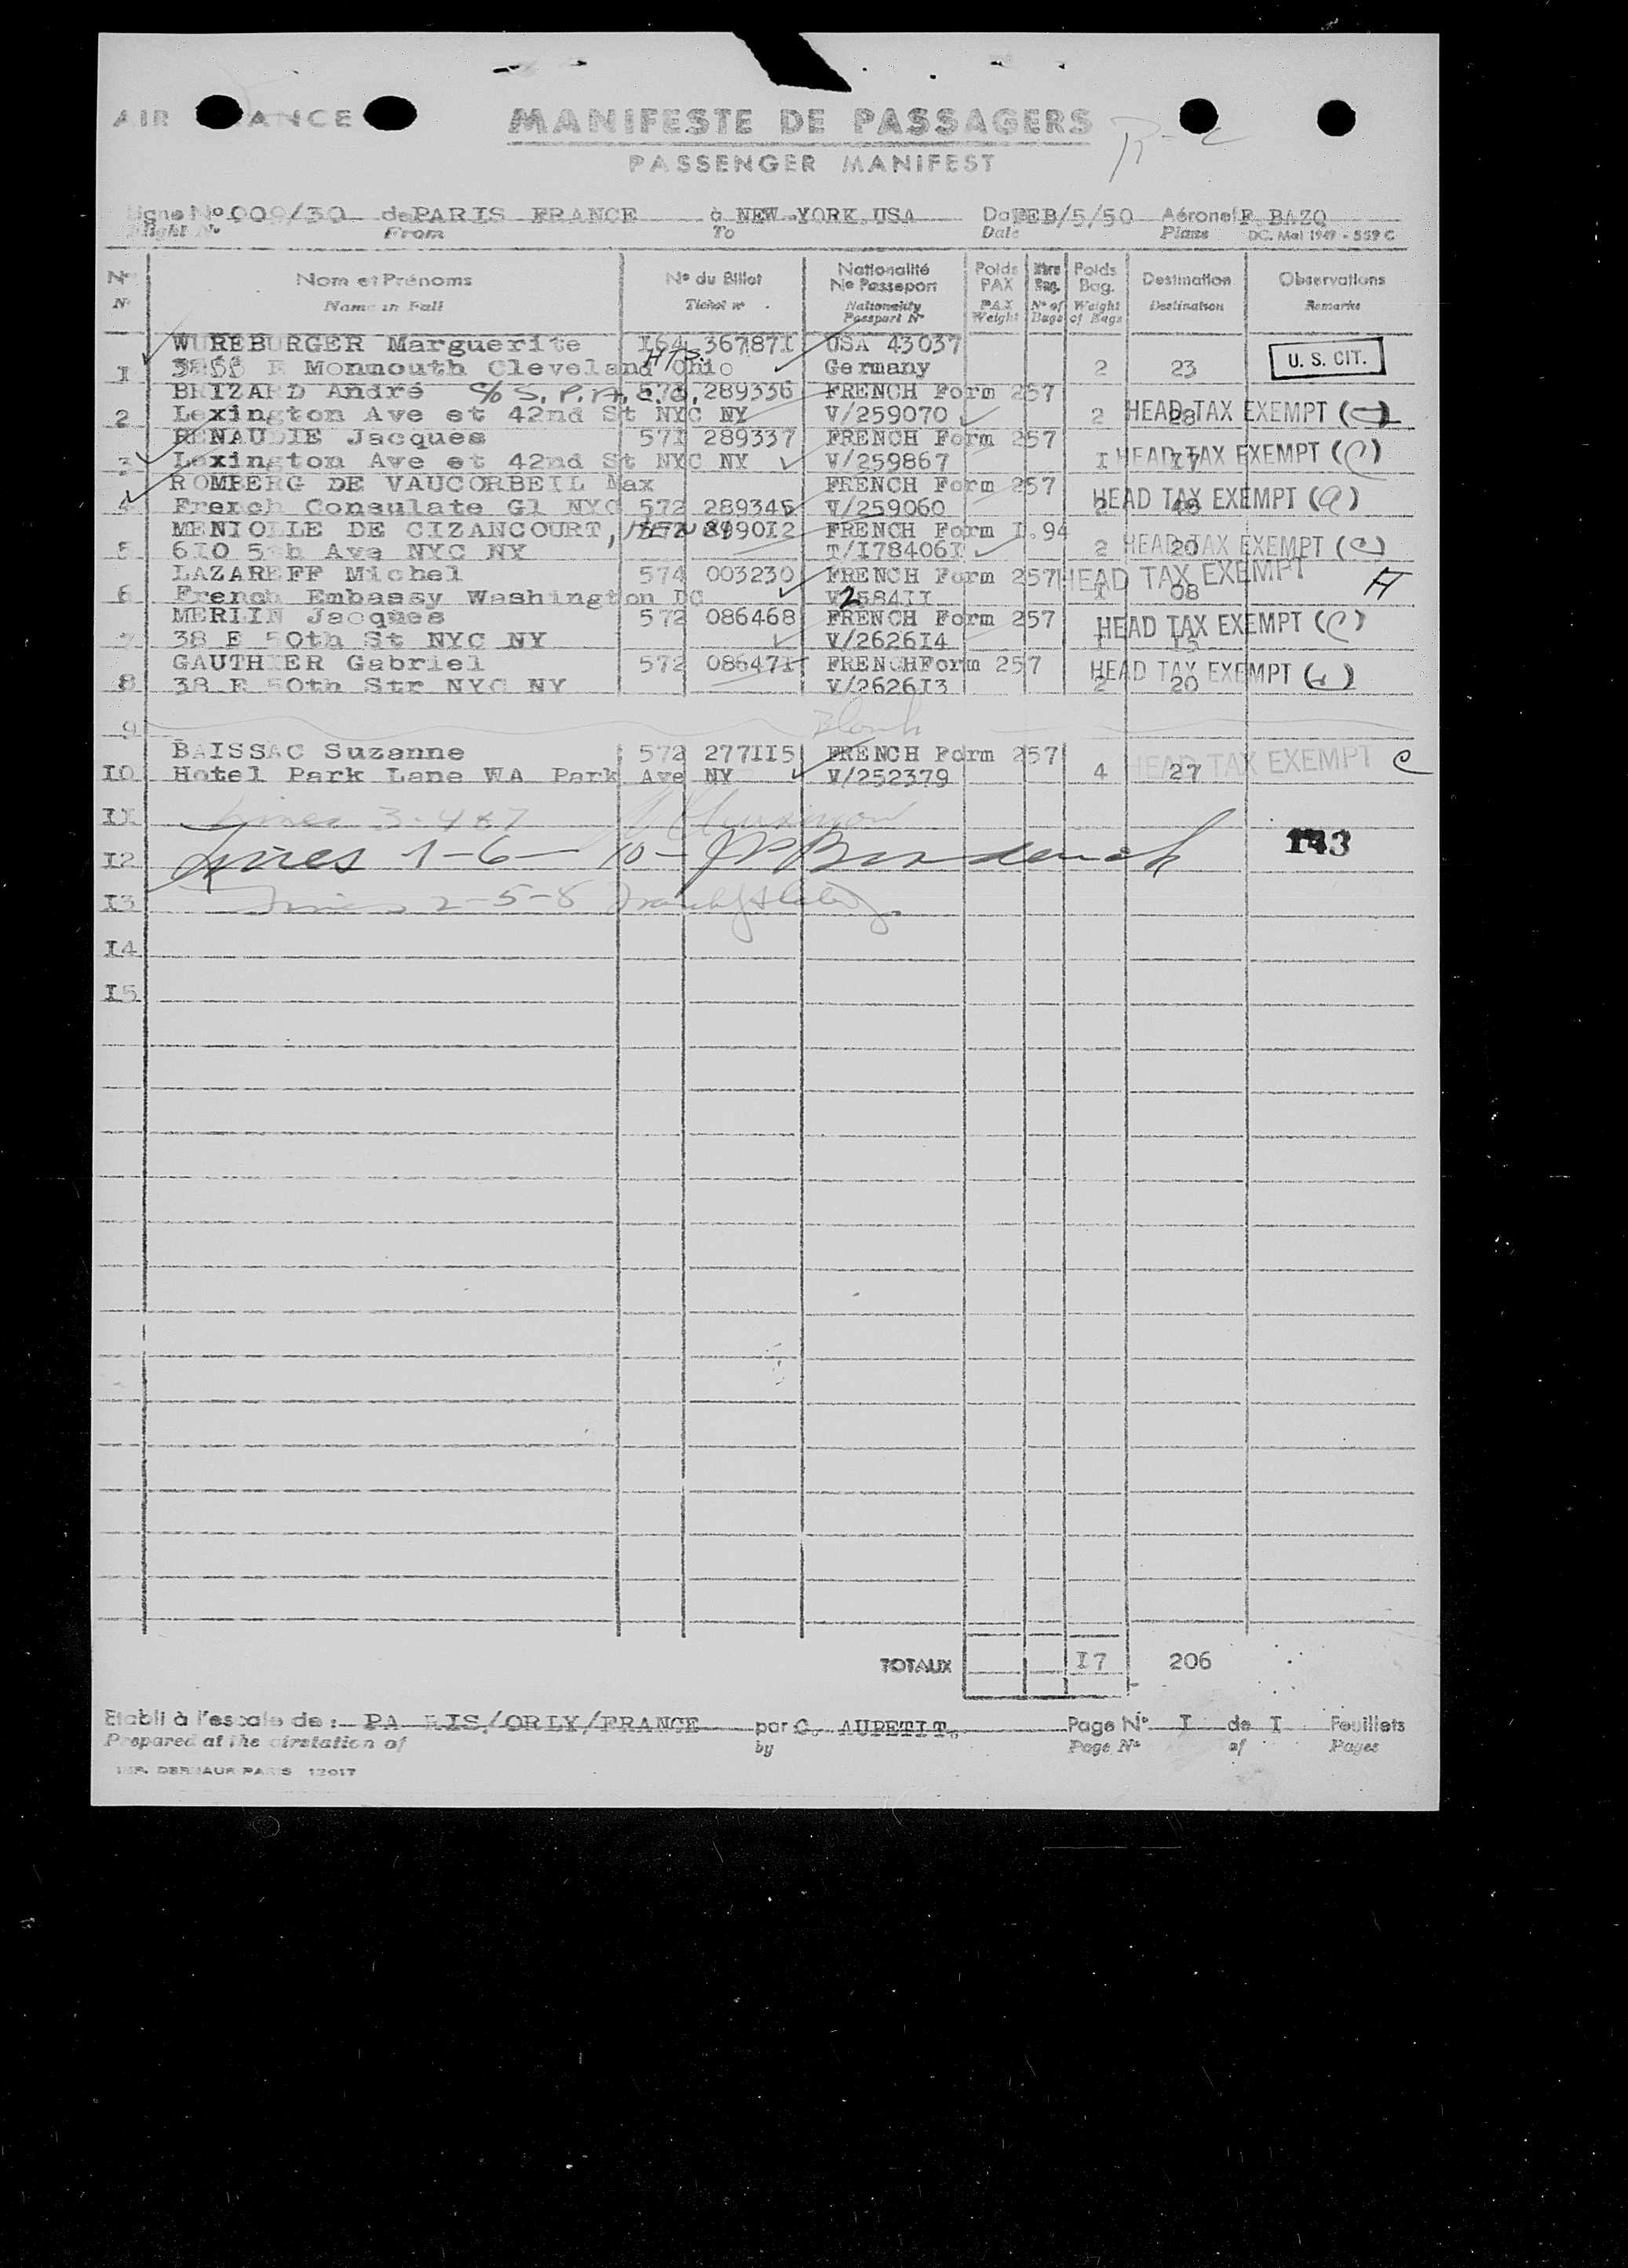 AIR FRANCE
MANIFESTE DE PASSAGERS
PASSENGER MANIFEST
Ligne No 009/30 de PARIS FRANCE à NEW-YORK USA Date FEB/5/50 Aéronef F BAZO
Flight No From To Date Plane DC. Mai 1949 - 559 C
No Nom et Prénoms No du Billet Nationalité No Passeport Poids PAX Nbre Bag. Poids Bag. Destination Observations
No Name in Full Ticket no Nationality Passport No PAX Weight No of Bags Weight of Bags Destination Remarks
WUREBURGER Marguerite 164 367871 USA 43037
1 E Monmouth Cleveland HTS. Ohio Germany 2 23 U. S. CIT.
BRIZARD André c/o S. P. A. 289336 FRENCH Form 257
2 Lexington Ave et 42nd St NYC NY V/259070 2 28 HEAD TAX EXEMPT (C)
RENAUDIE Jacques 571 289337 FRENCH Form 257
3 Lexington Ave et 42nd St NYC NY V/259867 I 17 HEAD TAX EXEMPT (C)
ROMBERG DE VAUCORBEIL Max FRENCH Form 257
4 French Consulate Gl NYC 572 289345 V/259060 2 HEAD TAX EXEMPT
MENIOLLE DE CIZANCOURT, 572 899012 FRENCH Form I.94
5 610 5th Ave NYC NY T/I78406I 2 20 HEAD TAX EXEMPT (C)
LAZAREFF Michel 574 003230 FRENCH Form 257 HEAD TAX EXEMPT
6 French Embassy Washington DC V/2584II I 08 H
MERLIN Jacques 572 086468 FRENCH Form 257
7 38 E 50th St NYC NY V/2626I4 I 15 HEAD TAX EXEMPT (C)
GAUTHIER Gabriel 572 08647I FRENCHForm 257
8 38 E 50th Str NYC NY V/2626I3 2 20 HEAD TAX EXEMPT
9 Blank
BAISSAC Suzanne 572 277II5 FRENCH Form 257
I0 Hotel Park Lane WA Park Ave NY V/252379 4 27 HEAD TAX EXEMPT C
II Lines 3-4&7
I2 Lines 1-6-10- 143
I3 Lines 2-5-8
I4
I5
TOTAUX I7 206
Etabli à l'escale de : PARIS/ORLY/FRANCE par C. AUPETIT. Page No I de I Feuillets
Prepared at the airstation of by Page No of Pages
IMP. DERNAUR PARIS 12017